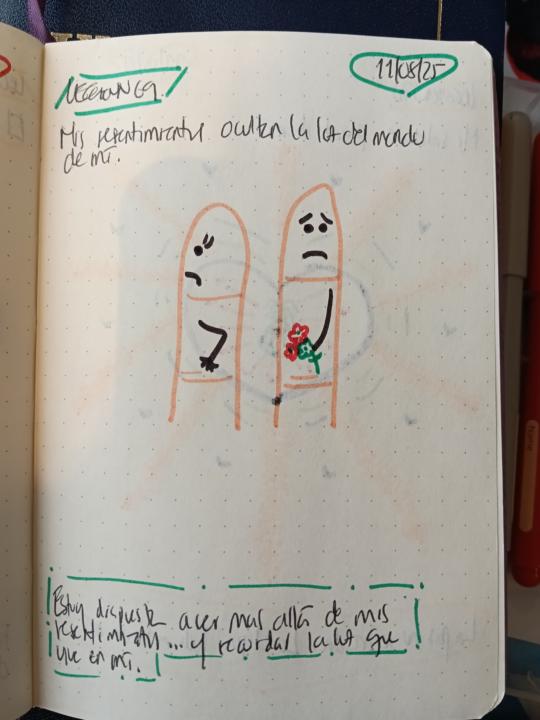 LECCION 69.
11/08/25
Mis resentimientos ocultan la luz del mundo
de mí.
Estoy dispuesta a ver mas allá de mis
resentimientos... y recordar la luz que
vive en mí.